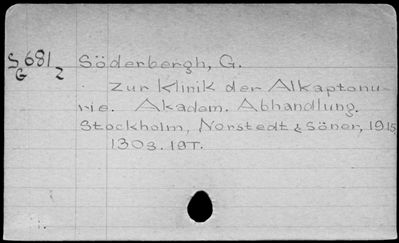 S 681 Söderbergh, G.
G 2
Zur Klinik der Alkaptonu-
rie. Akadem. Abhandlung.
Stockholm, Norstedt & Söner, 1915
130 s. 1 pt.